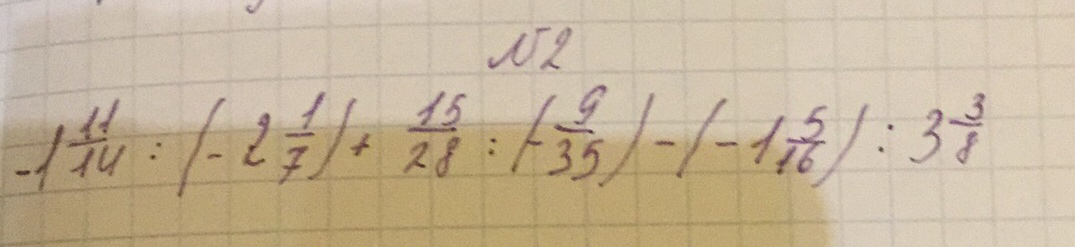 N2
-1 11/14 : (-2 1/7) + 15/28 : (-9/35) - (-1 5/16) : 3 3/8